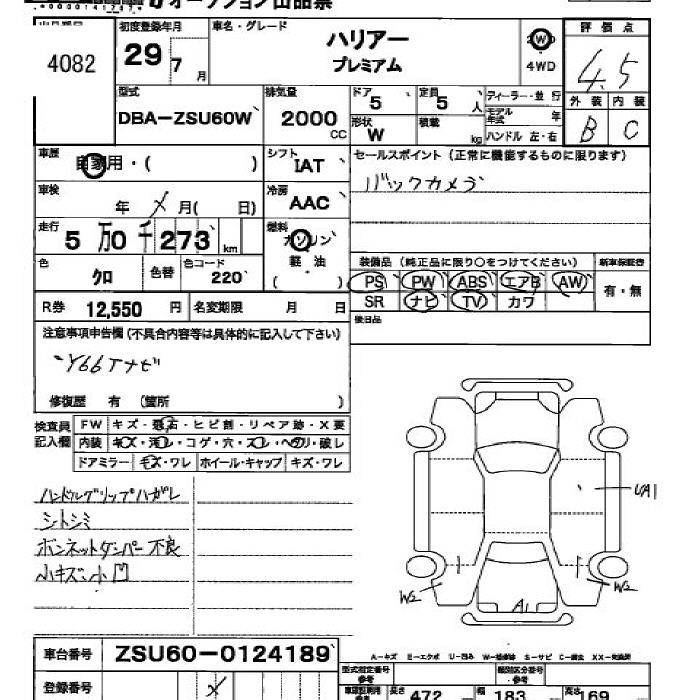 オークション出品票
出品番号 4082
初度登録年月 29 7月
車名・グレード ハリアー プレミアム
2WD
4WD
評価点 4.5
外装 内装
B C
型式 DBA-ZSU60W
排気量 2000 CC
ドア 5
定員 5 人
形状 W
積載 kg
ディーラー・並行
モデル年式 年
ハンドル 左・右
車歴 自家用・( )
シフト IAT
セールスポイント(正常に機能するものに限ります)
バックカメラ
車検 年 メ 月( 日)
冷房 AAC
走行 5万0千273km
燃料 ガソリン
軽・油
( )
色 クロ
色替
色コード 220
装備品(純正品に限り○をつけてください)
PS PW ABS エアB AW
SR ナビ TV カワ
新車保証書
有・無
R券 12,550 円
名変期限 月 日
後日品
注意事項申告欄(不具合内容等は具体的に記入して下さい)
Y66Tナビ
修復歴 有 (箇所 )
検査員記入欄
FW キズ・飛石・ヒビ割・リペア跡・X要
内装 キズ・汚レ・コゲ・穴・スレ・ヘタリ・破レ
ドアミラー キズ・ワレ ホイール・キャップ キズ・ワレ
ハンドルグリップハガレ
シトシミ
ボンネットダンパー不良
小キズ・小凹
UA1
W2
W2
A1
車台番号 ZSU60-0124189
A-キズ E-エクボ U-凹み W-補修跡 S-サビ C-腐食 XX-交換済
登録番号 メ
型式指定番号 参考
類別区分番号 参考
長さ 472
幅 183
高さ 169